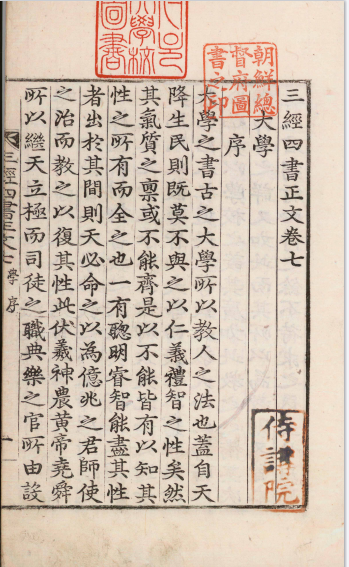 大學校
圖書
朝鮮總
督府圖
書之印
三經四書正文卷七
大學
序
大學之書古之大學所以教人之法也蓋自天
降生民則既莫不與之以仁義禮智之性矣然
其氣質之稟或不能齊是以不能皆有以知其
性之所有而全之也一有聰明睿智能盡其性
者出於其間則天必命之以為億兆之君師使
之治而教之以復其性此伏羲神農黃帝堯舜
所以繼天立極而司徒之職典樂之官所由設
三經四書正文七 學序 一
侍講院